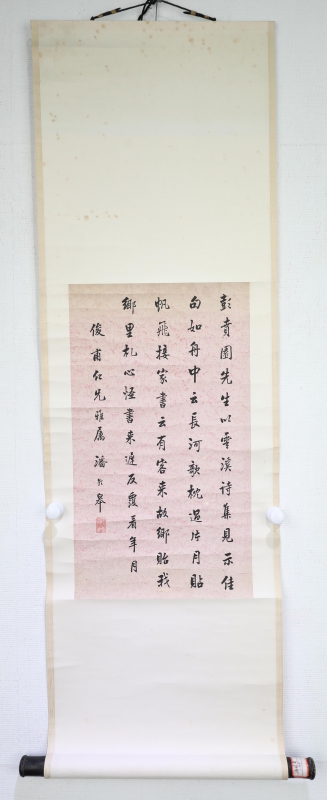 彭賁園先生以雲溪詩集見示佳
句如舟中云長河敧枕過片月貼
帆飛接家書云有客來故鄉貽我
鄉里札心怪書來遲反覆看年月
俊甫仁兄雅屬 潘齡皋